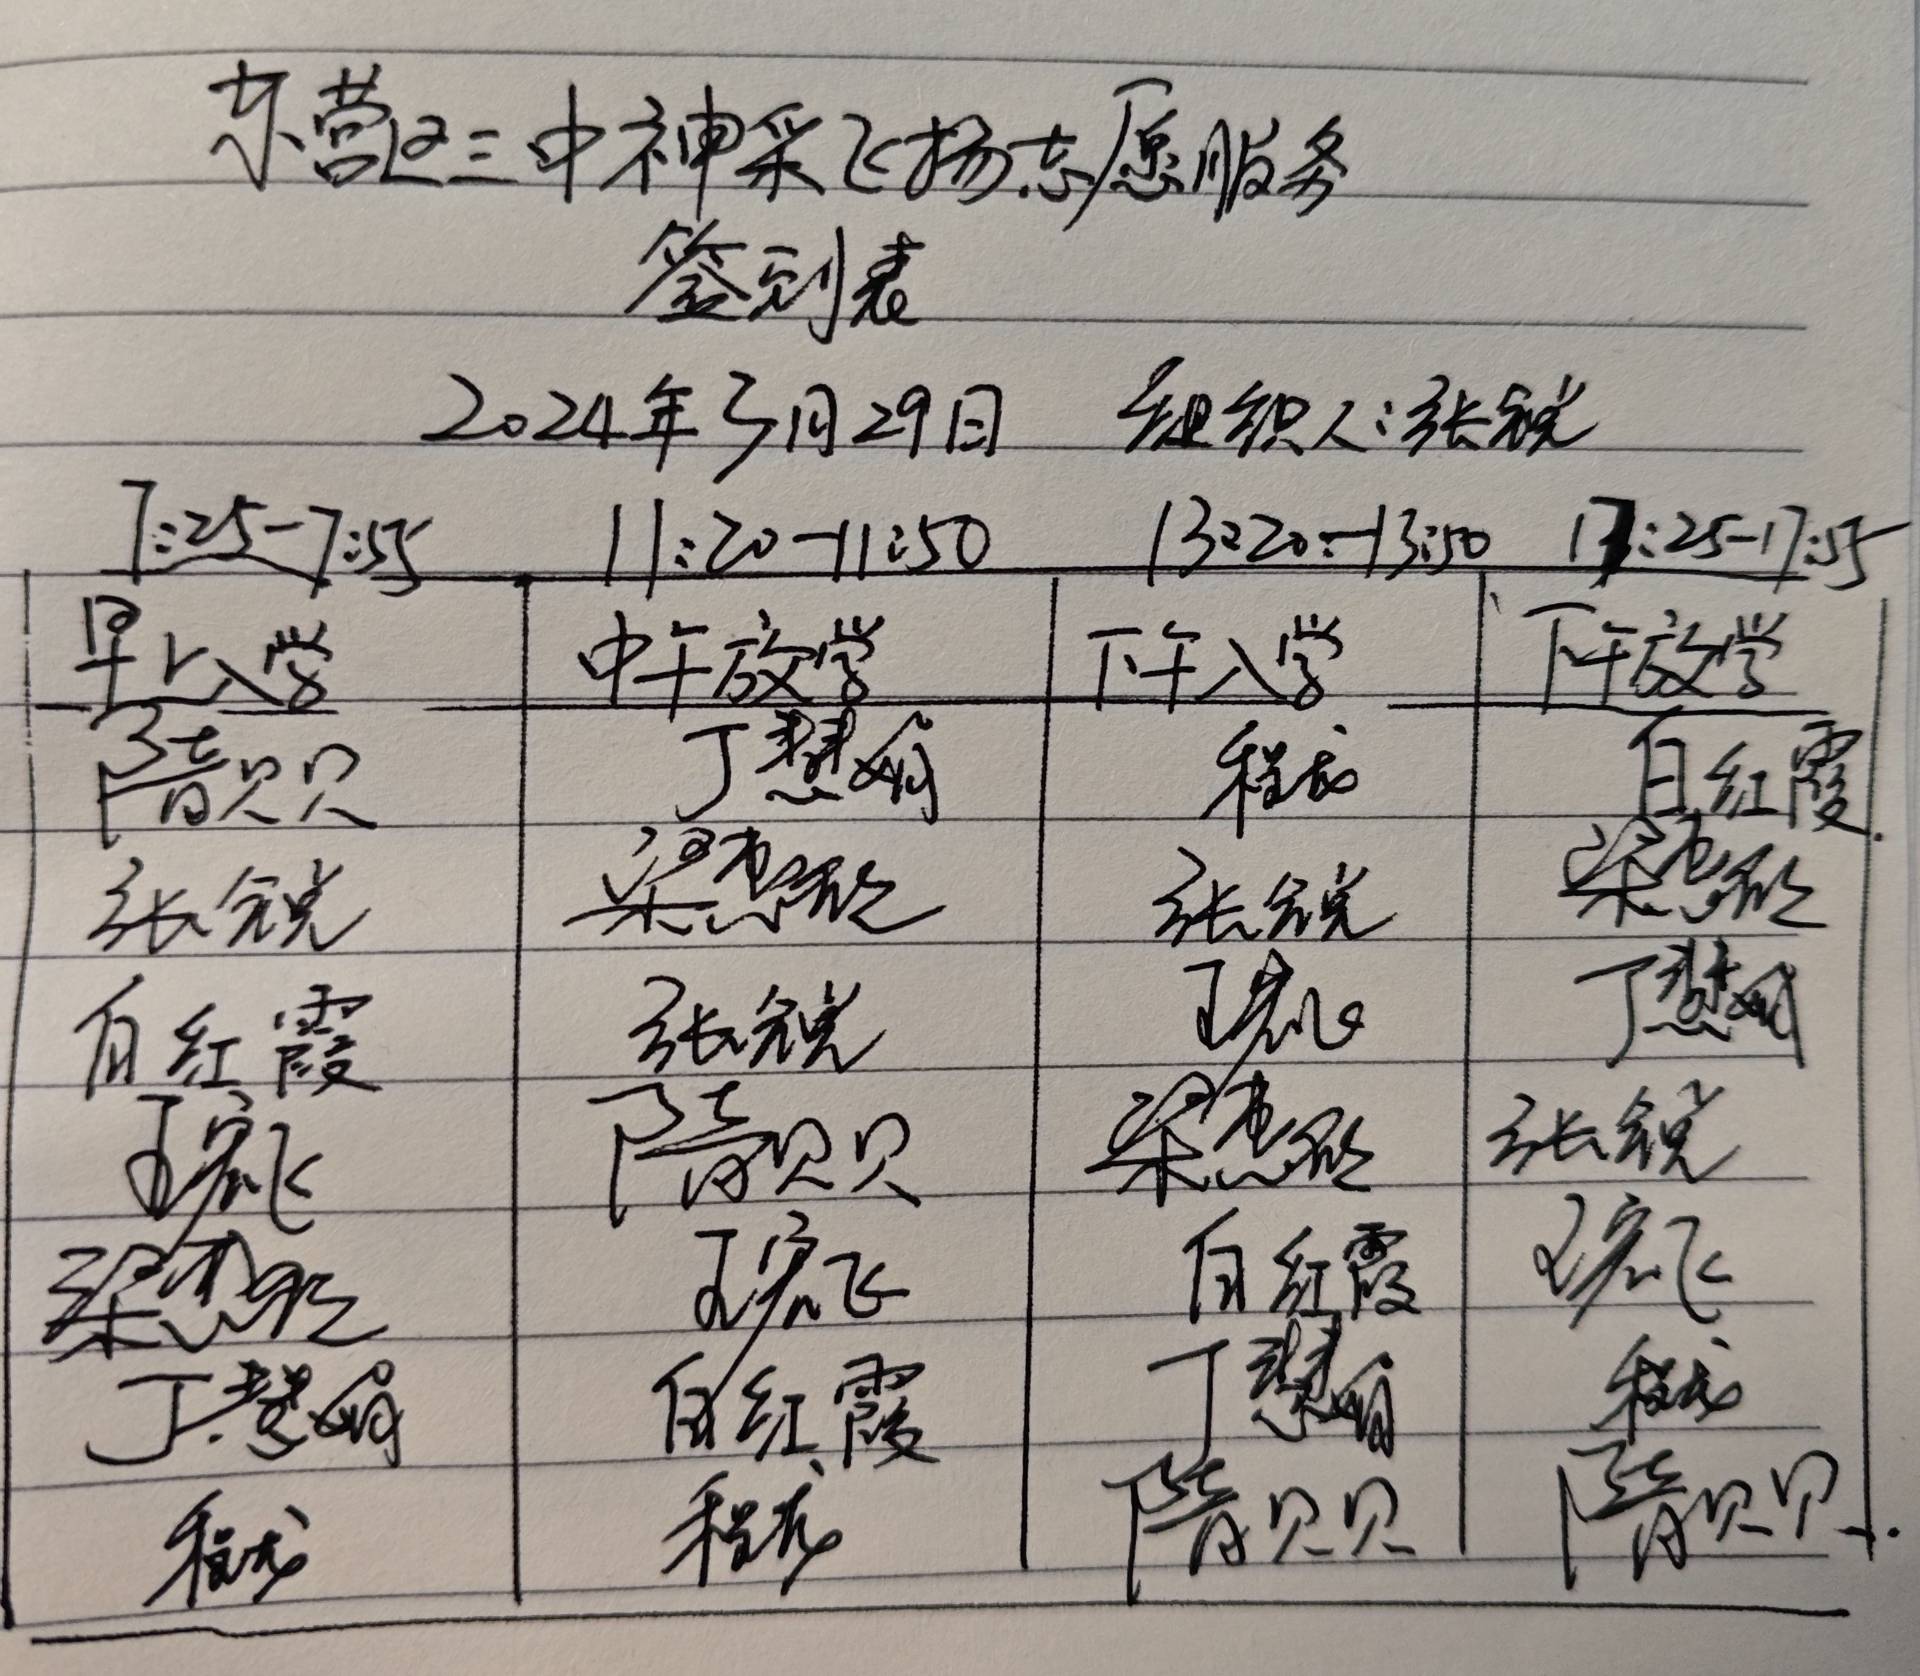 东营区三中神采飞扬志愿服务
签到表
2024年3月29日 组织人:张锐
7:25-7:55 11:20-11:50 13:20-13:50 17:25-17:55
早上入学 中午放学 下午入学 下午放学
隋贝贝 丁慧娟 程龙 白红霞
张锐 梁惠欣 张锐 梁惠欣
白红霞 张锐 王宏飞 丁慧娟
王宏飞 隋贝贝 梁惠欣 张锐
梁惠欣 王宏飞 白红霞 王宏飞
丁慧娟 白红霞 丁慧娟 程龙
程龙 程龙 隋贝贝 隋贝贝